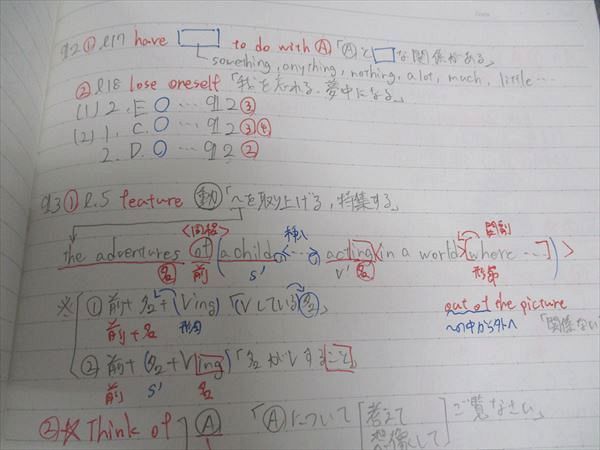 q2 ① l17 have □ to do with Ⓐ 「Ⓐと□な関係がある」
something, anything, nothing, a lot, much, little …
② l18 lose oneself 「我を忘れる、夢中になる」
(1) 2. E ○ … q2 ③
(2) 1. C. ○ … q2 ③④
2. D. ○ … q2 ②
q3 ① l.5 feature 動 「〜を取り上げる, 特集する」
<同格> 挿入 関副
the adventures of (a child <…> acting (in a world (where …)) >
名 前 S' V' 名 形節
※ ① 前 + 名2 + (Ving) 「Vしている名2」
前+名 形句
out of the picture
〜の中から外へ 「関係ない
② 前 + (名2 + Ving) 「名2がVすること」
前 S' 名
② ※ Think of Ⓐ 「Ⓐについて 考えて ご覧なさい」
想像して